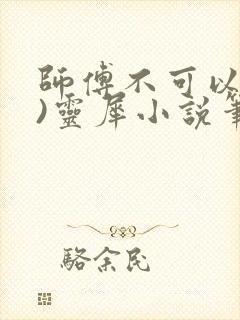 師傅不可以
)靈犀小說筆
駱余民